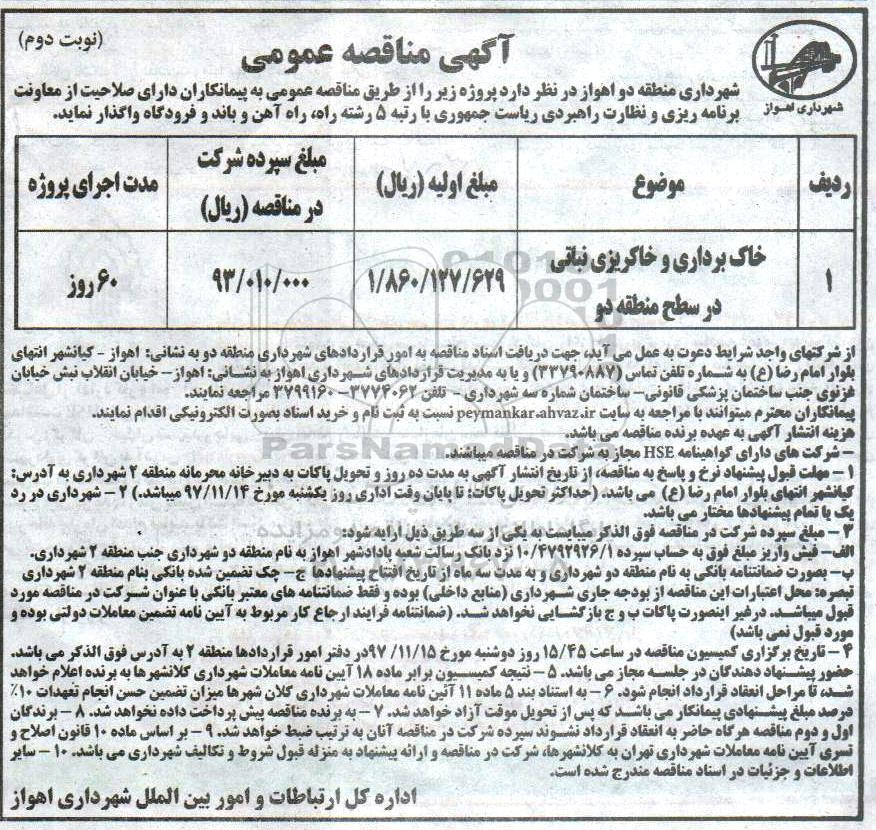 آگهی مناقصه عمومی
(نوبت دوم)
شهرداری اهواز
شهرداری منطقه دو اهواز در نظر دارد پروژه زیر را از طریق مناقصه عمومی به پیمانکاران دارای صلاحیت از معاونت
برنامه ریزی و نظارت راهبردی ریاست جمهوری با رتبه ۵ رشته راه، راه آهن و باند و فرودگاه واگذار نماید.
ردیف موضوع مبلغ اولیه (ریال) مبلغ سپرده شرکت در مناقصه (ریال) مدت اجرای پروژه
۱ خاک برداری و خاکریزی نباتی در سطح منطقه دو ۱/۸۶۰/۱۲۷/۶۲۹ ۹۳/۰۱۰/۰۰۰ ۶۰ روز
از شرکتهای واجد شرایط دعوت به عمل می آید، جهت دریافت اسناد مناقصه به امور قراردادهای شهرداری منطقه دو به نشانی: اهواز - کیانشهر انتهای
بلوار امام رضا (ع) به شماره تلفن تماس (۳۳۷۹۰۸۸۷) و یا به مدیریت قراردادهای شهرداری اهواز به نشانی: اهواز- خیابان انقلاب نبش خیابان
غزنوی جنب ساختمان پزشکی قانونی- ساختمان شماره سه شهرداری - تلفن ۳۷۷۴۰۶۲- ۳۷۹۹۱۶۰ مراجعه نمایند.
پیمانکاران محترم میتوانند با مراجعه به سایت peymankar.ahvaz.ir نسبت به ثبت نام و خرید اسناد بصورت الکترونیکی اقدام نمایند.
هزینه انتشار آگهی به عهده برنده مناقصه می باشد.
- شرکت های دارای گواهینامه HSE مجاز به شرکت در مناقصه میباشند.
۱ - مهلت قبول پیشنهاد نرخ و پاسخ به مناقصه، از تاریخ انتشار آگهی به مدت ده روز و تحویل پاکات به دبیر خانه محرمانه منطقه ۲ شهرداری به آدرس:
کیانشهر انتهای بلوار امام رضا (ع) می باشد. (حداکثر تحویل پاکات: تا پایان وقت اداری روز یکشنبه مورخ ۹۷/۱۱/۱۴ میباشد.) ۲ - شهرداری در رد
یک یا تمام پیشنهادها مختار می باشد.
۳ - مبلغ سپرده شرکت در مناقصه فوق الذکر میبایست به یکی از سه طریق ذیل ارایه شود:
الف- فیش واریز مبلغ فوق به حساب سپرده ۱۰/۴۷۹۲۹۲۶/۱ نزد بانک رسالت شعبه پادادشهر اهواز به نام منطقه دو شهرداری جنب منطقه ۲ شهرداری.
ب- بصورت ضمانتنامه بانکی به نام منطقه دو شهرداری و به مدت سه ماه از تاریخ افتتاح پیشنهادها ج- چک تضمین شده بانکی بنام منطقه ۲ شهرداری
تبصره: محل اعتبارات این مناقصه از بودجه جاری شهرداری (منابع داخلی) بوده و فقط ضمانتنامه های معتبر بانکی با عنوان شرکت در مناقصه مورد
قبول میباشد. درغیر اینصورت پاکات ب و ج بازگشایی نخواهد شد. (ضمانتنامه فرایند ارجاع کار مربوط به آیین نامه تضمین معاملات دولتی بوده و
مورد قبول نمی باشد)
۴ - تاریخ برگزاری کمیسیون مناقصه در ساعت ۱۵/۴۵ روز دوشنبه مورخ ۹۷/۱۱/۱۵در دفتر امور قراردادها منطقه ۲ به آدرس فوق الذکر می باشد.
حضور پیشنهاد دهندگان در جلسه مجاز می باشد. ۵ - نتیجه کمیسیون برابر ماده ۱۸ آیین نامه معاملات شهرداری کلانشهرها به برنده اعلام خواهد
شد، تا مراحل انعقاد قرارداد انجام شود. ۶ - به استناد بند ۵ ماده ۱۱ آئین نامه معاملات شهرداری کلان شهرها میزان تضمین حسن انجام تعهدات ۱۰٪
درصد مبلغ پیشنهادی پیمانکار می باشد که پس از تحویل موقت آزاد خواهد شد. ۷ - به برنده مناقصه پیش پرداخت داده نخواهد شد. ۸ - برندگان
اول و دوم مناقصه هرگاه حاضر به انعقاد قرارداد نشوند سپرده شرکت در مناقصه آنان به ترتیب ضبط خواهد شد. ۹ - بر اساس ماده ۱۰ قانون اصلاح و
تسری آیین نامه معاملات شهرداری تهران به کلانشهرها، شرکت در مناقصه و ارائه پیشنهاد به منزله قبول شروط و تکالیف شهرداری می باشد. ۱۰ - سایر
اطلاعات و جزئیات در اسناد مناقصه مندرج شده است.
اداره کل ارتباطات و امور بین الملل شهرداری اهواز
ParsNamadData